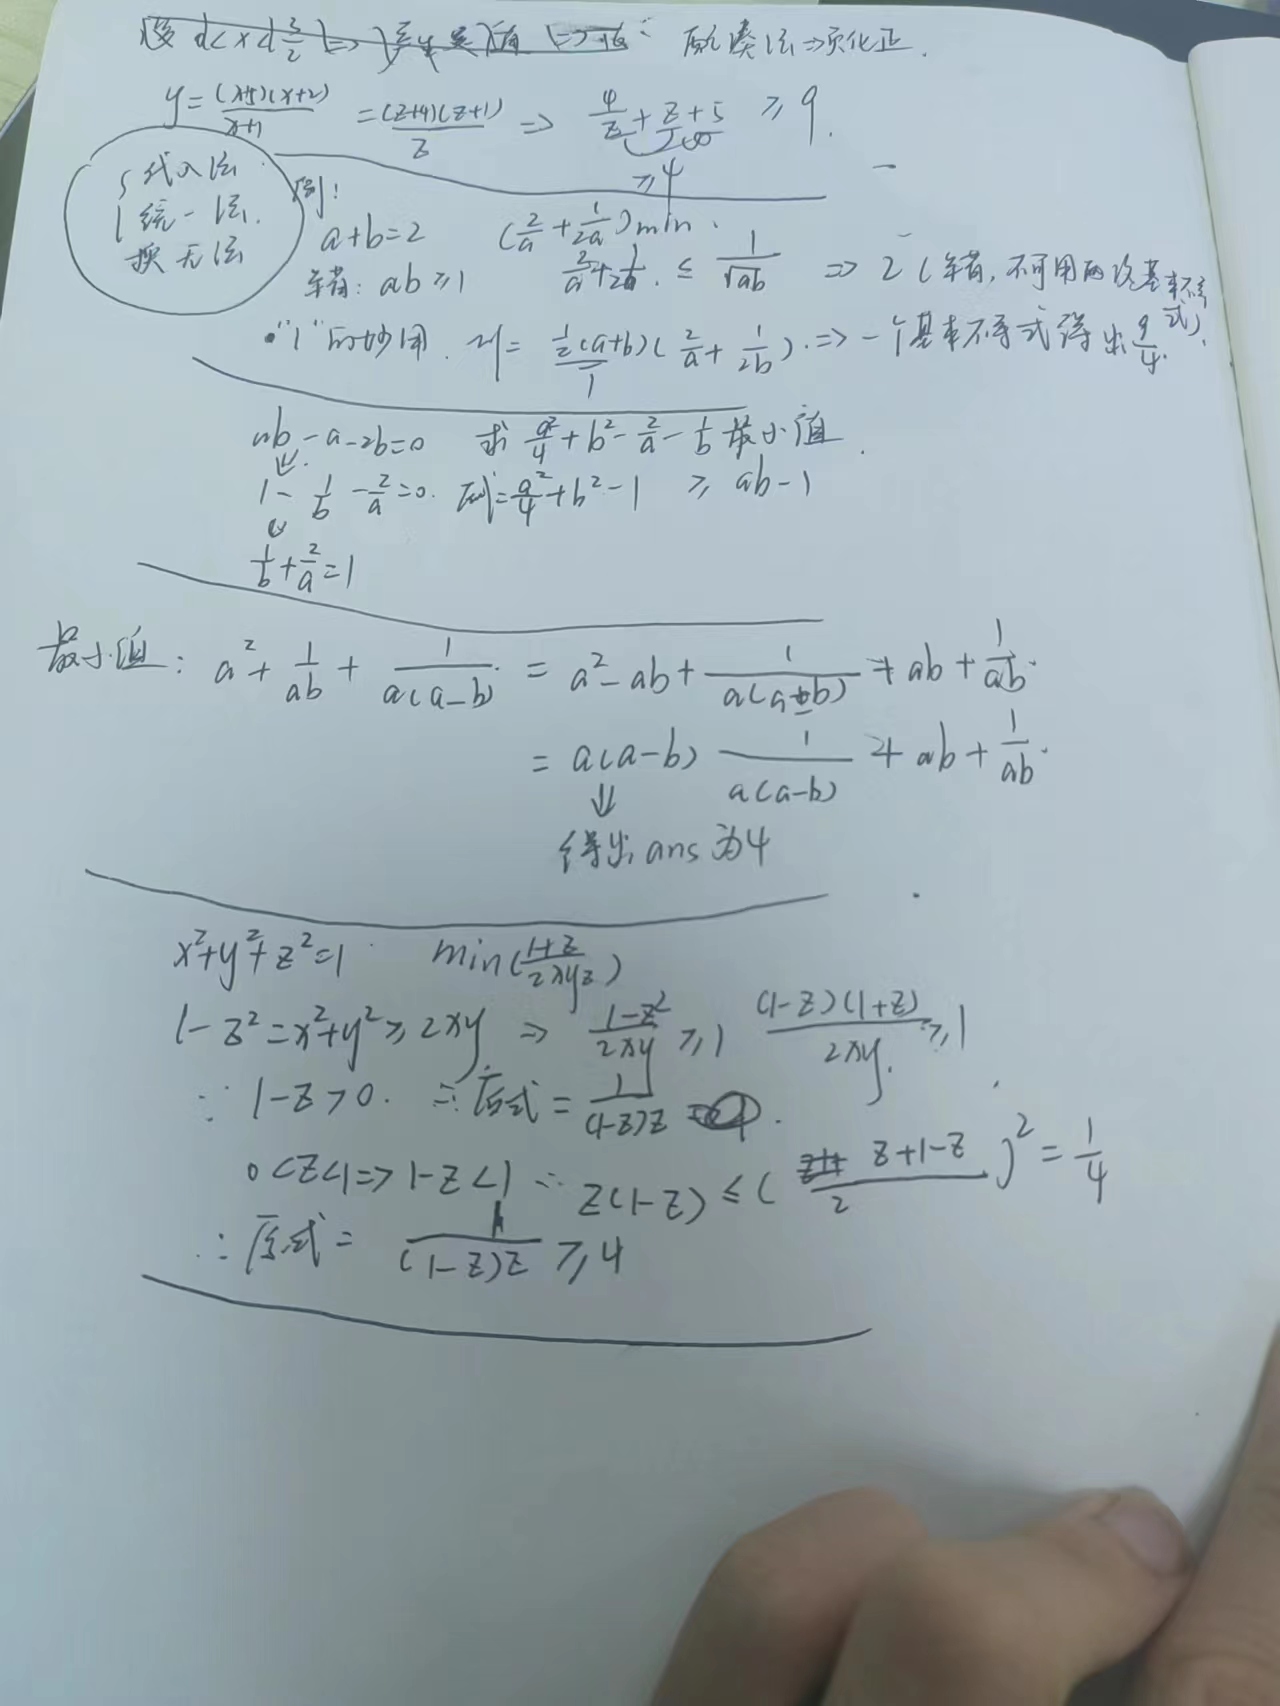 配凑法→负化正.
y=\frac{(x+5)(x+2)}{x+1} = \frac{(z+4)(z+1)}{z} ⇒ \frac{4}{z}+z+5 ≥9.
≥4
{代入法
统一法.
换元法
例:
a+b=2 (\frac{2}{a}+\frac{1}{2a})min.
错: ab≥1 \frac{2}{a}+\frac{1}{2b}. ≤ \frac{1}{\sqrt{ab}} ⇒ 2 (错,不可用两次基本不等式)
•"1"的妙用. 则= \frac{1}{2}(a+b)(\frac{2}{a}+\frac{1}{2b}).⇒一个基本不等式得出\frac{9}{4}.
1
ab-a-2b=0 求 \frac{a^2}{4}+b^2-\frac{2}{a}-\frac{1}{b} 最小值.
1-\frac{1}{b}-\frac{2}{a}=0. 原式=\frac{a^2}{4}+b^2-1 ≥ ab-1
\frac{1}{b}+\frac{2}{a}=1
最小值: a^2+\frac{1}{ab}+\frac{1}{a(a-b)} = a^2-ab+\frac{1}{a(a-b)}+ab+\frac{1}{ab}.
= a(a-b) \frac{1}{a(a-b)} + ab+\frac{1}{ab}.
⇓
得出ans为4
x^2+y^2+z^2=1 min(\frac{1+z}{2xyz})
1-z^2=x^2+y^2≥2xy ⇒ \frac{1-z^2}{2xy}≥1 \frac{(1-z)(1+z)}{2xy}≥1
∵ 1-z>0. ∴原式=\frac{1}{(1-z)z}
0<z<1⇒1-z<1 ∴ z(1-z)≤(\frac{z+1-z}{2})^2=\frac{1}{4}
∴原式= \frac{1}{(1-z)z} ≥4